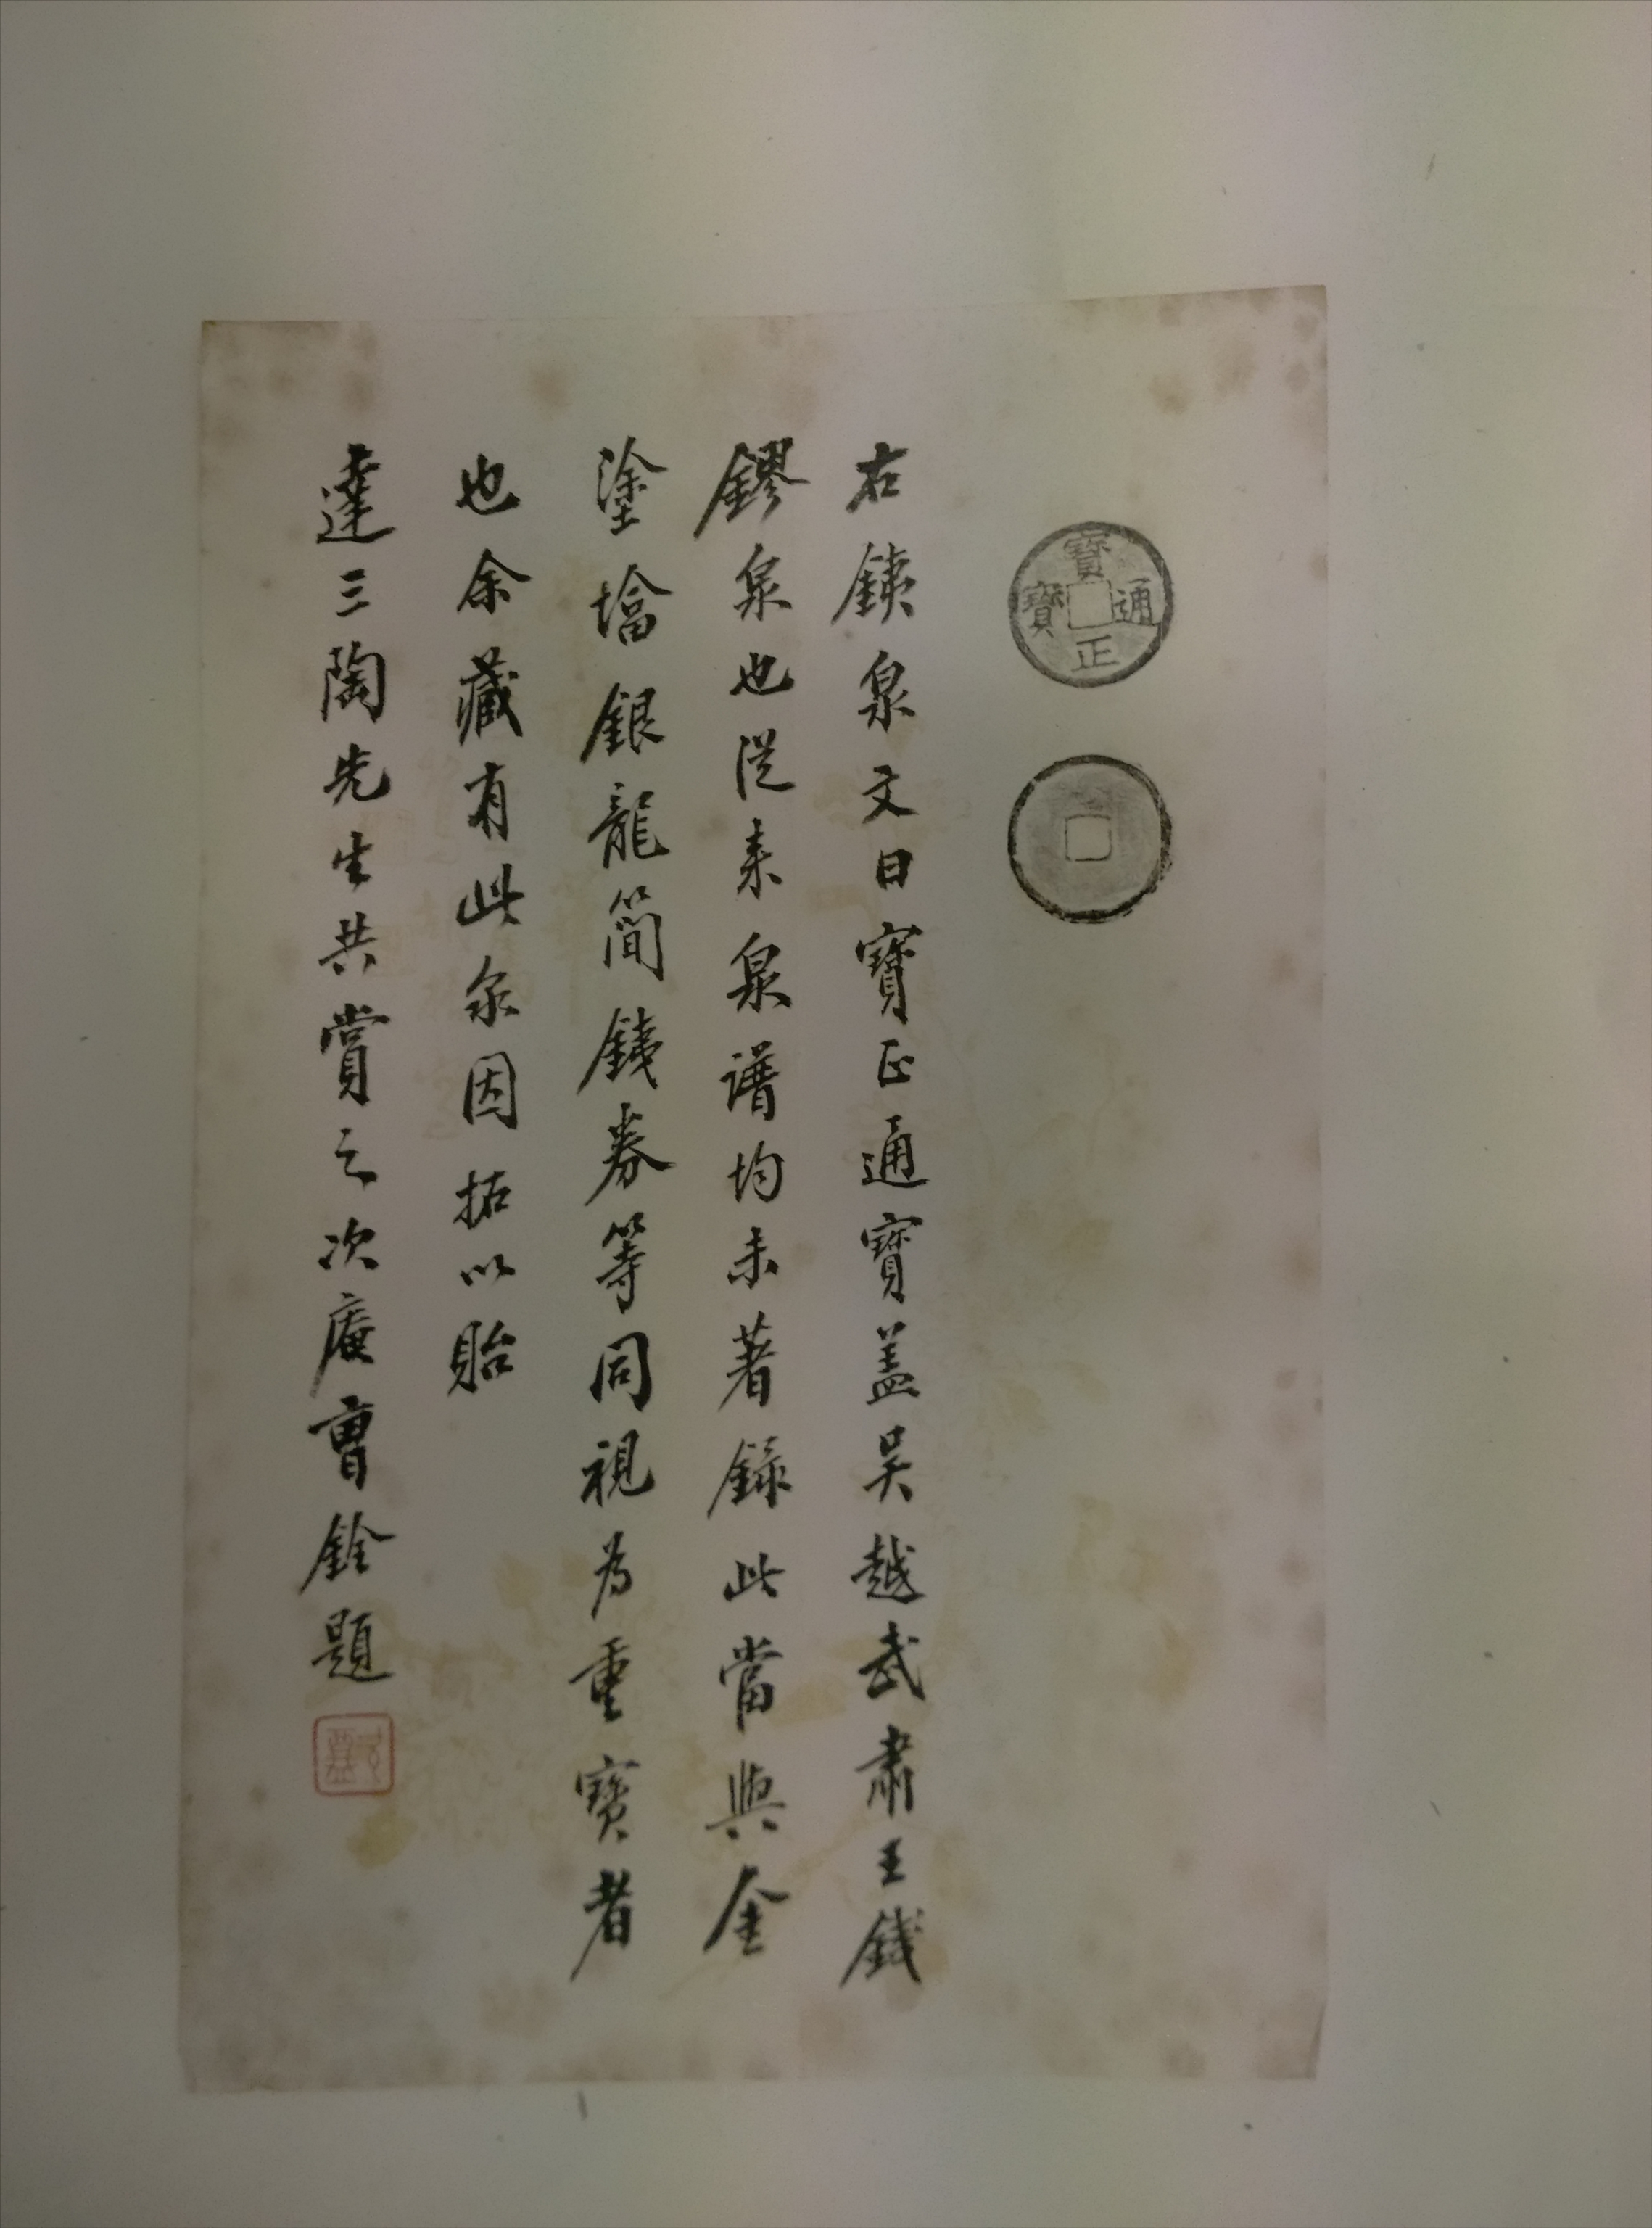 寶正通寶
右鐵泉文曰寶正通寶蓋吳越武肅王錢
鏐泉也從來泉譜均未著錄此當與金
塗墖銀龍簡鐵券等同視為重寶者
也余藏有此泉因拓以貽
達三陶先生共賞之次庵曹銓題